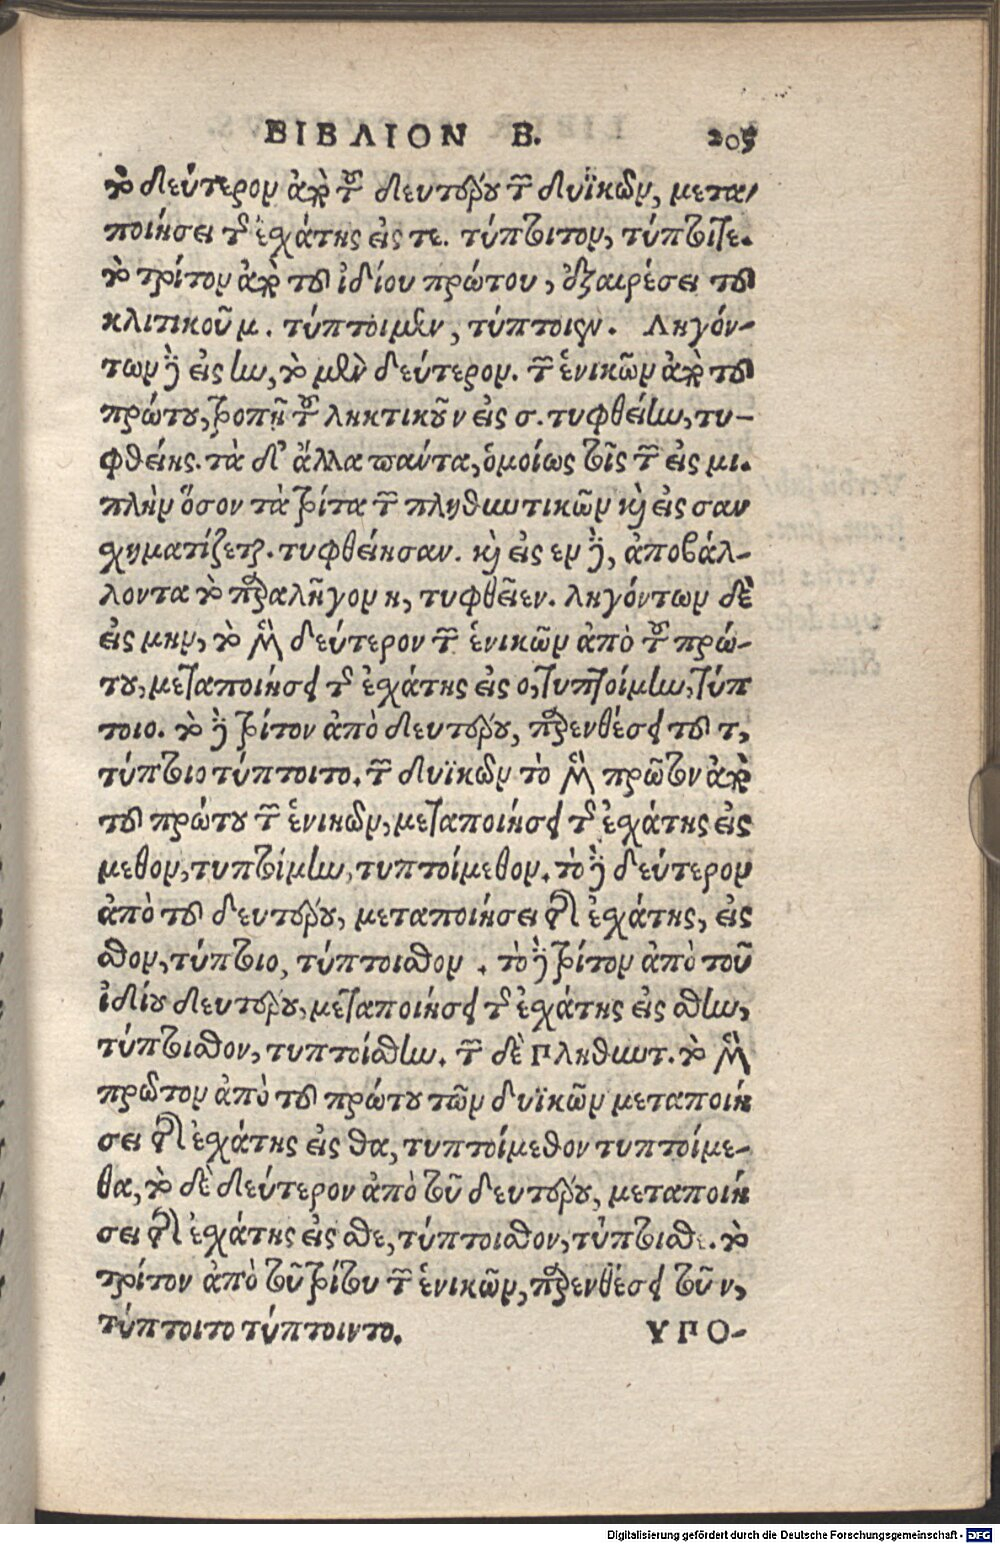 ΒΙΒΛΙΟΝ Β. 205
τὸ δεύτερον ἀπὸ τοῦ δευτέρου τῶν δυϊκῶν, μετα-
ποιήσει τῆς ἐσχάτης εἰς τε. τύπτοιτον, τύπτοιτε.
τὸ τρίτον ἀπὸ τοῦ ἰδίου πρώτου, ἐξαιρέσει τοῦ
κλιτικοῦ μ. τύπτοιμεν, τύπτοιεν. Ληγόν-
των δὲ εἰς ην, τὸ μὲν δεύτερον. τῶν ἑνικῶν ἀπὸ τοῦ
πρώτου, τροπῇ τοῦ ληκτικοῦ ν εἰς σ. τυφθείην, τυ-
φθείης. τὰ δ' ἄλλα πάντα, ὁμοίως τοῖς τῶν εἰς μι.
πλὴν ὅσον τὰ τρίτα τῶν πληθυντικῶν καὶ εἰς σαν
χηματίζεται. τυφθείησαν. καὶ εἰς εν δὲ, ἀποβάλ-
λοντα τὸ παραλῆγον η, τυφθεῖεν. ληγόντων δὲ
εἰς μην, τὸ μὲν δεύτερον τῶν ἑνικῶν ἀπὸ τοῦ πρώ-
του, μεταποιήσει τῆς ἐσχάτης εἰς ο, τυπτοίμην, τύπ
τοιο. τὸ δὲ τρίτον ἀπὸ δευτέρου, παρενθέσει τοῦ τ,
τύπτοιο τύπτοιτο. τῶν δυϊκῶν τὸ μὲν πρῶτον ἀπὸ
τοῦ πρώτου τῶν ἑνικῶν, μεταποιήσει τῆς ἐσχάτης εἰς
μεθον, τυπτοίμην, τυπτοίμεθον. τὸ δὲ δεύτερον
ἀπὸ τοῦ δευτέρου, μεταποιήσει τῆς ἐσχάτης, εἰς
σθον, τύπτοιο, τύπτοισθον. τὸ δὲ τρίτον ἀπὸ τοῦ
ἰδίου δευτέρου, μεταποιήσει τῆς ἐσχάτης εἰς σθην,
τύπτοισθον, τυπτοίσθην. τῶν δὲ πληθυντ. τὸ μὲν
πρῶτον ἀπὸ τοῦ πρώτου τῶν δυϊκῶν μεταποιή
σει τῆς ἐσχάτης εἰς θα, τυπτοίμεθον τυπτοίμε-
θα, τὸ δὲ δεύτερον ἀπὸ τοῦ δευτέρου, μεταποιή
σει τῆς ἐσχάτης εἰς σθε, τύπτοισθον, τύπτοισθε. τὸ
τρίτον ἀπὸ τοῦ τρίτου τῶν ἑνικῶν, παρενθέσει τοῦ ν,
τύπτοιτο τύπτοιντο. ΥΠΟ-
Digitalisierung gefördert durch die Deutsche Forschungsgemeinschaft - DFG